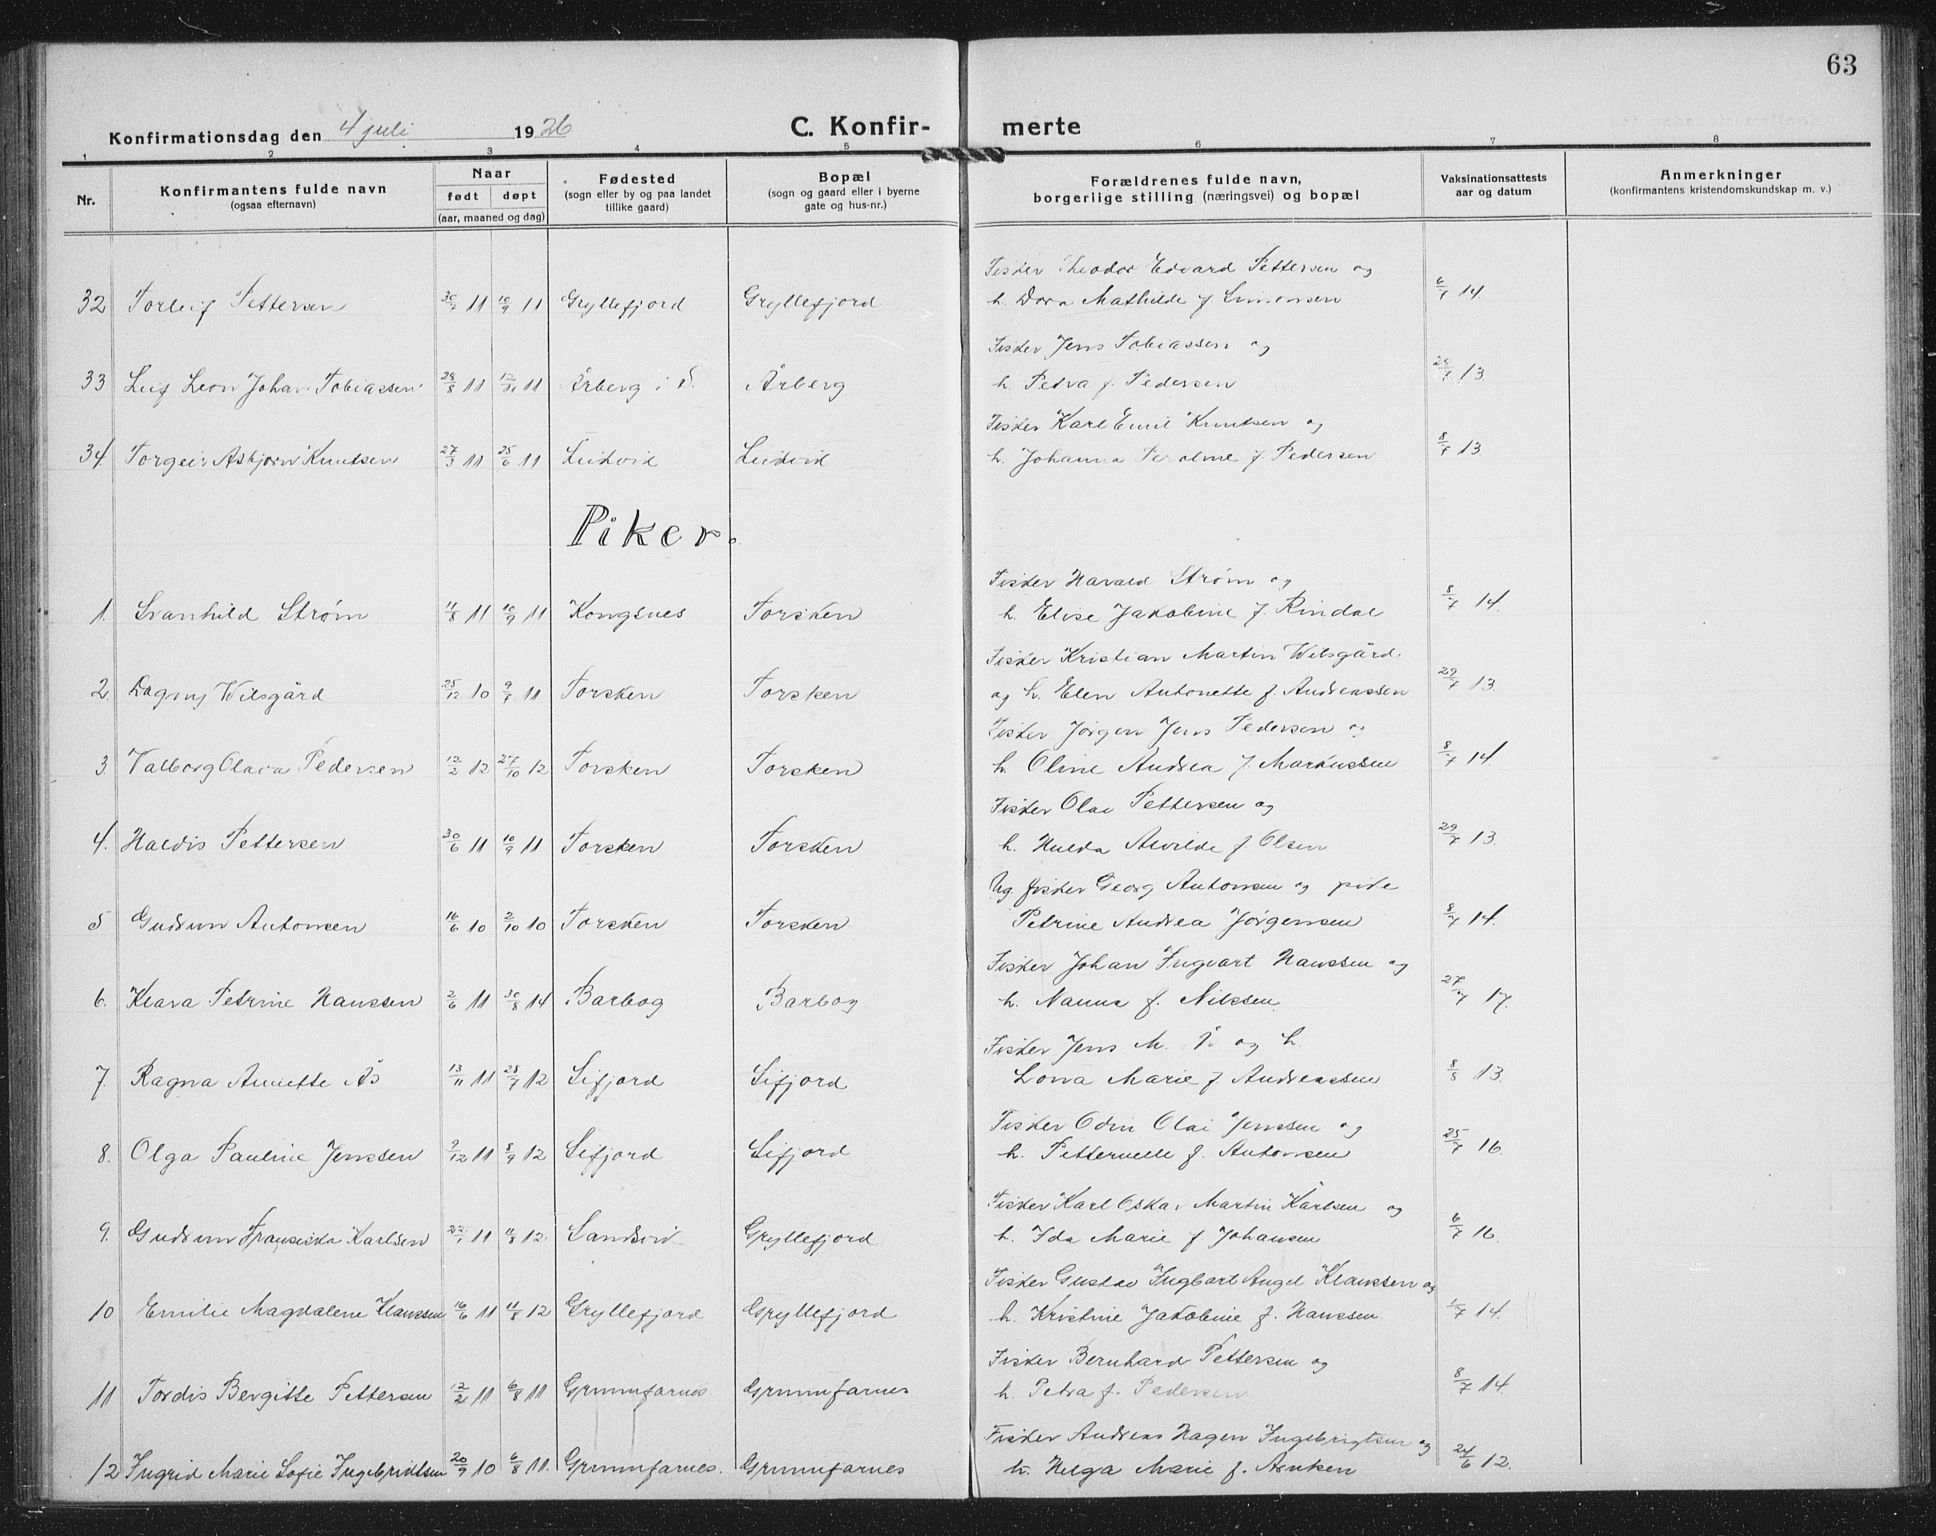 63
Konfirmationsdag den 4 juli 1926 C. Konfir- merte
1 2 3 4 5 6 7 8
Nr. Konfirmantens fulde navn (ogsaa efternavn) Naar født døpt (aar, maaned og dag) Fødested (sogn eller by og paa landet tillike gaard) Bopæl (sogn og gaard eller i byerne gate og hus-nr.) Forældrenes fulde navn, borgerlige stilling (næringsvei) og bopæl Vaksinationsattests aar og datum Anmerkninger (konfirmantens kristendomskundskap m. v.)
Fisker Theodor Edvard Pettersen og
32 Torleif Pettersen 11 10/9 11 Gryllefjord Gryllefjord h. Dora Mathilde f Simonsen 6/7 14.
Fisker Jens Tobiassen og
33 Leif Leon Johan Tobiassen 28/8 11 11 Årberg i T. Årberg h. Petra f. Pedersen 13.
Fisker Karl Emil Knutsen og
34 Torgeir Asbjørn Knutsen 27/3 11 25/6 11 Lutvid Lutvid h. Johanna f. Pedersen 8/7 13
Piker.
Fisker Harald Strøm og
1. Svanhild Strøm 11/8 11 10/9 11 Kongsnes Torsken h. Elise Jakobine f. Rindal 8/7 14.
Fisker Kristian Martin Wilsgård
2. Dagny Wilsgård 25/12 10 9/7 11 Torsken Torsken og h. Elen Antonette f. Andreassen 29/7 13.
Fisker Jørgen Jens Pedersen og
3. Valborg Olava Pedersen 12/2 12 27/10 12 Torsken Torsken h. Oline Andrea f. Markussen 8/7 14.
Fisker Olai Pettersen og
4. Haldis Pettersen 30/6 11 10/9 11 Torsken Torsken h. Hulda Alvilde f Olsen 29/7 13.
Ug. fisker Georg Antonsen og pike
5 Gudrun Antonsen 16/6 10 2/10 10 Torsken Torsken Petrine Andrea Jørgensen 8/7 14.
Fisker Johan Ingvart Hanssen og
6. Klara Petrine Hanssen 2/6 11 30/8 14 Barbog Barbog h. Nanna f. Nilssen 27/7 17.
Fisker Jens M. Ås og h.
7. Ragna Annette Ås 13/11 11 28/7 12 Sifjord Sifjord Lova Marie f Andreassen 8/8 13.
Fisker Odin Olai Jenssen og
8. Olga Pauline Jenssen 9/12 11 8/9 12 Sifjord Sifjord h. Petternelle f. Antonsen 25/7 16.
Fisker Karl Oskar Martin Karlsen og
9. Gudrun Fransiska Karlsen 11 11/8 12 Sandvik Gryllefjord h. Ida Marie f Johansen 6/7 16.
Fisker Gustav Ingbart Angel Klaussen og
10 Emilie Magdalene Klaussen 16/6 11 11/8 12 Gryllefjord Gryllefjord h. Kristine Jakobine f. Hanssen 14.
Fisker Bernhard Pettersen og
11 Tordis Bergitte Pettersen 12/2 11 6/8 11 Grunnfarnes Grunnfarnes h. Petra f. Pedersen 8/7 14.
Fisker Andreas Hagen Ingebrigtsen og
12 Ingrid Marie Sofie Ingebrigtsen 20/9 10 6/8 11. Grunnfarnes. Grunnfarnes h. Helga Marie f. Arntsen 24/6 12.